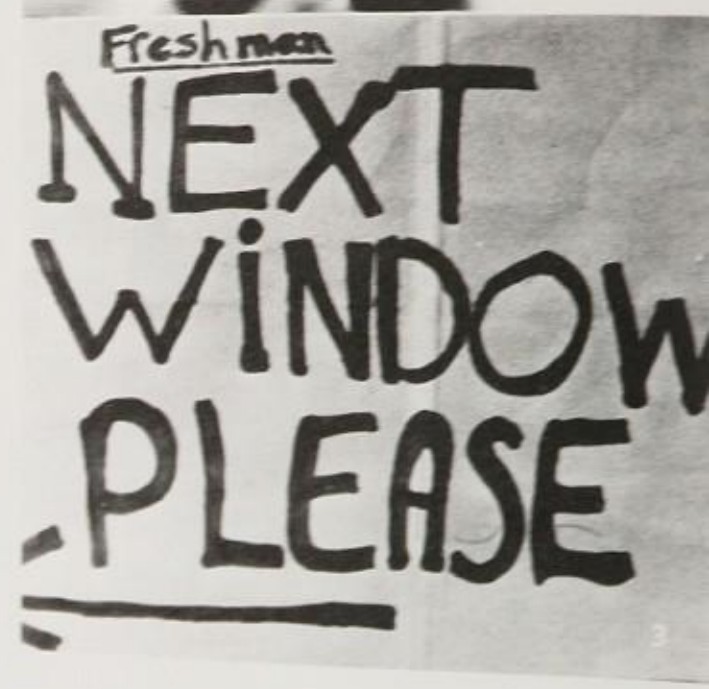 Freshman
NEXT
WiNDOW
PLEASE
3